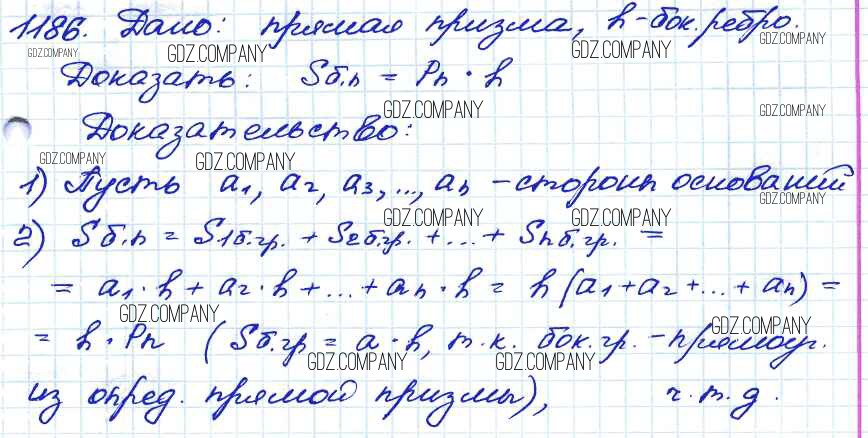 1186. Дано: прямая призма, h-бок. ребро.
GDZ.COMPANY GDZ.COMPANY GDZ.COMPANY GDZ.COMPANY
Доказать: Sб.п = Pп · h
GDZ.COMPANY GDZ.COMPANY
Доказательство:
GDZ.COMPANY GDZ.COMPANY
1) Пусть a1, a2, a3, ..., an - стороны оснований
GDZ.COMPANY GDZ.COMPANY GDZ.COMPANY
2) Sб.п = S1б.гр. + S2б.гр. + ... + Snб.гр. =
= a1 · h + a2 · h + ... + an · h = h (a1 + a2 + ... + an) =
GDZ.COMPANY GDZ.COMPANY
= h · Pп (Sб.гр = a · h, т.к. бок. гр. - прямоуг.
GDZ.COMPANY GDZ.COMPANY
из опред. прямой призмы), ч.т.д.